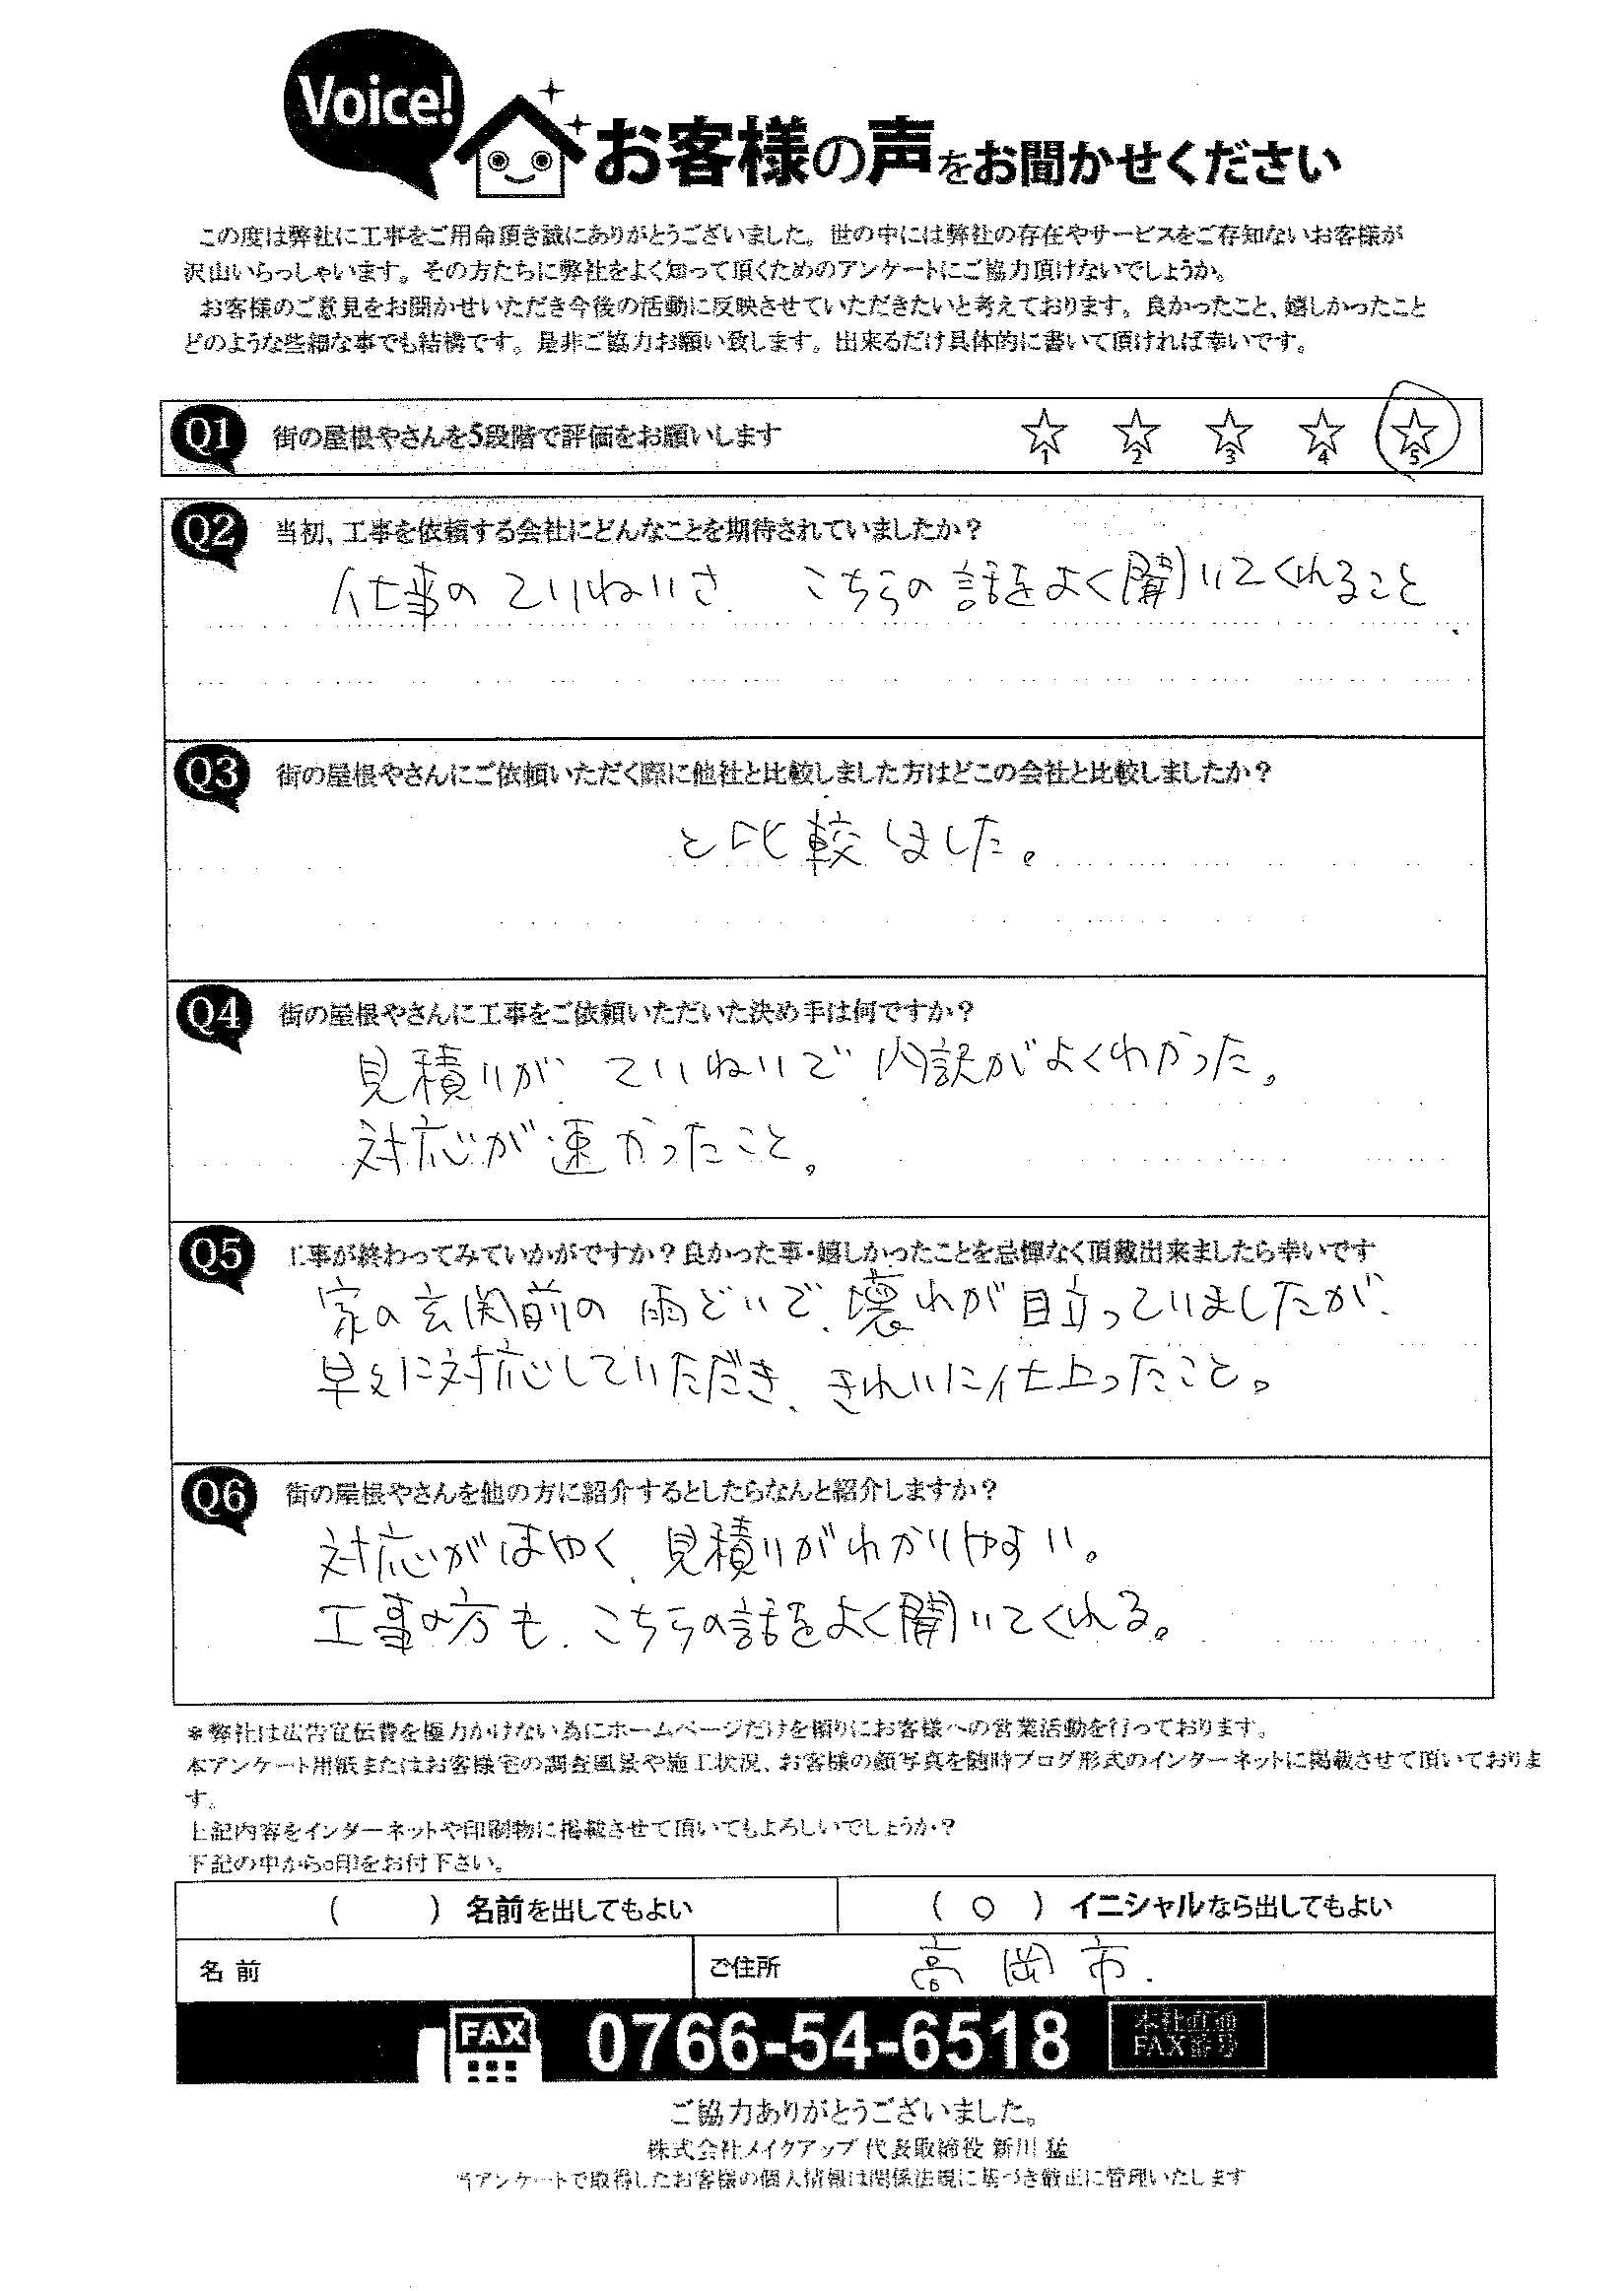 Voice!
お客様の声をお聞かせください
この度は弊社に工事をご用命頂き誠にありがとうございました。世の中には弊社の存在やサービスをご存知ないお客様が
沢山いらっしゃいます。その方たちに弊社をよく知って頂くためのアンケートにご協力頂けないでしょうか。
お客様のご意見をお聞かせいただき今後の活動に反映させていただきたいと考えております。良かったこと、嬉しかったこと
どのような些細な事でも結構です。是非ご協力お願い致します。出来るだけ具体的に書いて頂ければ幸いです。
Q1 街の屋根やさんを5段階で評価をお願いします ☆1 ☆2 ☆3 ☆4 ☆5
Q2 当初、工事を依頼する会社にどんなことを期待されていましたか？
仕事のていねいさ、こちらの話をよく聞いてくれること、
Q3 街の屋根やさんにご依頼いただく際に他社と比較しました方はどこの会社と比較しましたか？
と比較しました。
Q4 街の屋根やさんに工事をご依頼いただいた決め手は何ですか？
見積りが、ていねいで、内訳がよくわかった。
対応が速かったこと。
Q5 工事が終わってみていかがですか？良かった事・嬉しかったことを忌憚なく頂戴出来ましたら幸いです
家の玄関前の雨どいで、壊れが目立っていましたが、
早々に対応していただき、きれいに仕上ったこと。
Q6 街の屋根やさんを他の方に紹介するとしたらなんと紹介しますか？
対応がはやく、見積りがわかりやすい。
工事の方も、こちらの話をよく聞いてくれる。
＊弊社は広告宣伝費を極力かけない為にホームページだけを頼りにお客様への営業活動を行っております。
本アンケート用紙またはお客様宅の調査風景や施工状況、お客様の顔写真を随時ブログ形式のインターネットに掲載させて頂いておりま
す。
上記内容をインターネットや印刷物に掲載させて頂いてもよろしいでしょうか？
下記の中から○印をお付下さい。
（　　）名前を出してもよい （ ○ ）イニシャルなら出してもよい
名 前 ご住所 高岡市.
FAX 0766-54-6518 本社直通
FAX番号
ご協力ありがとうございました。
株式会社メイクアップ 代表取締役 新川 猛
当アンケートで取得したお客様の個人情報は関係法規に基づき厳正に管理いたします